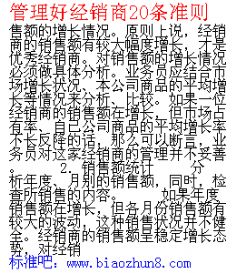 管理好经销商20条准则
售额的增长情况。原则上说，经销
商的销售额有较大幅度增长，才是
优秀经销商。对销售额的增长情况
必须做具体分析。业务员应结合市
场增长状况、本公司商品的平均增
长等情况来分析、比较。如果一位
经销商的销售额在增长，但市场占
有率、自己公司商品的平均增长率
不长反降的话，那么可以断言，业
务员对这家经销商的管理并不妥善
。 2．销售额统计 分
析年度、月别的销售额，同时，检
查所销售的内容。 如果年度
销售额在增长，但各月份销售额有
较大的波动，这种销售状况并不健
全。经销商的销售额呈稳定增长态
势，对经销
标准吧：www.biaozhun8.com